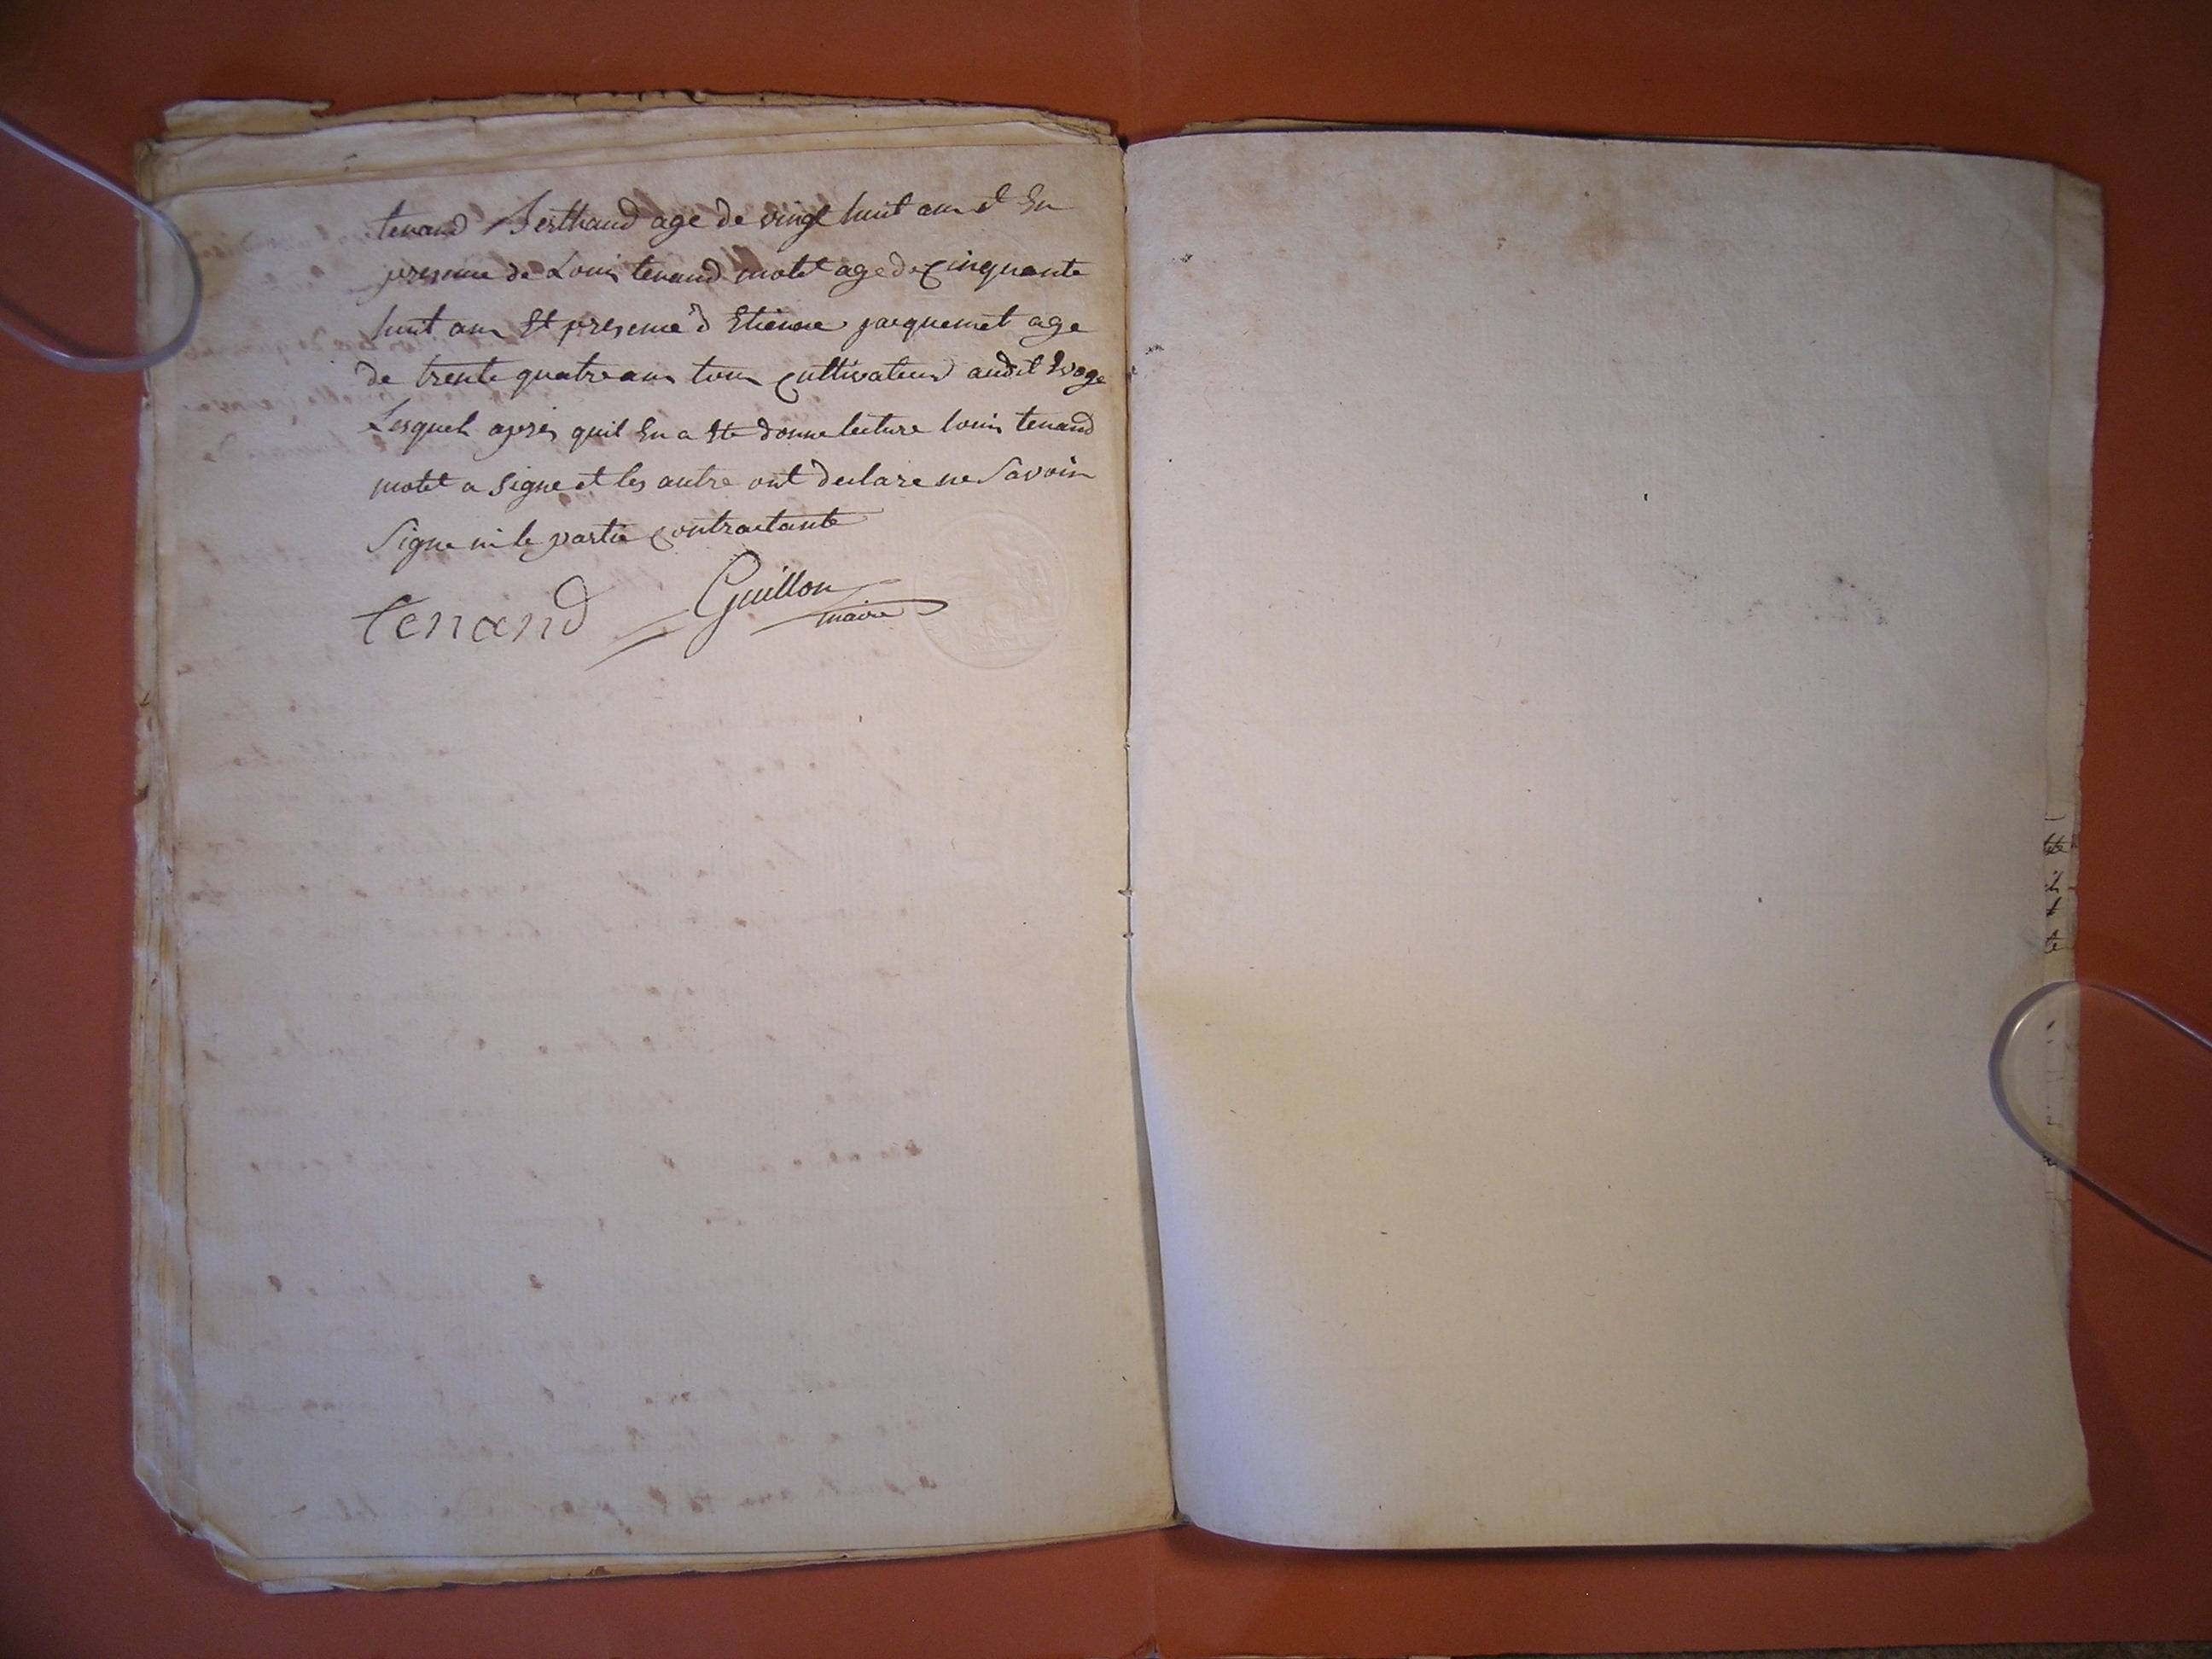 tenand Berthaud age de vingt huit ans et En
presence de Louis tenand motet age de cinquante
huit ans Et presence d Etienne jacquemet age
de trente quatre ans tous cultivateurs audit Evoge
Lesquels apres quil En a Ete donne lecture louis tenand
motet a signe et les autre ont declare ne Savoir
Signe ni le partie contractante
tenand Guillon
maire